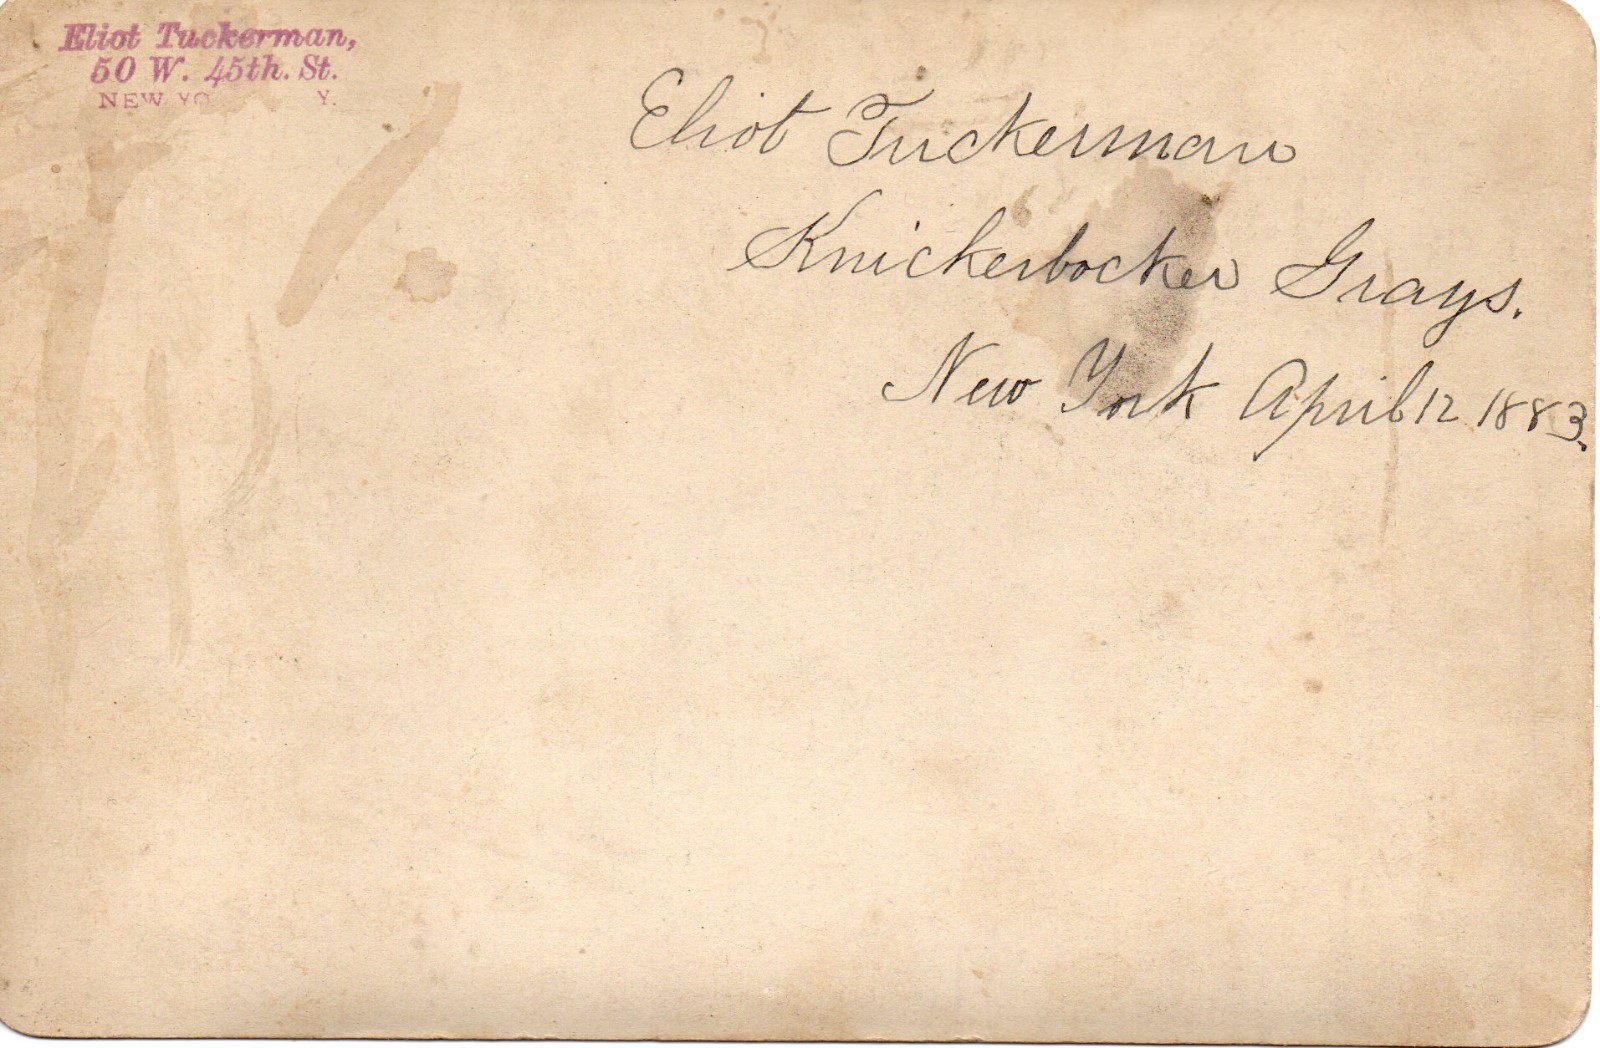 Eliot Tuckerman,
50 W. 45th. St.
NEW YO Y.
Eliot Tuckerman
Knickerbocker Grays.
New York April 12 1883.